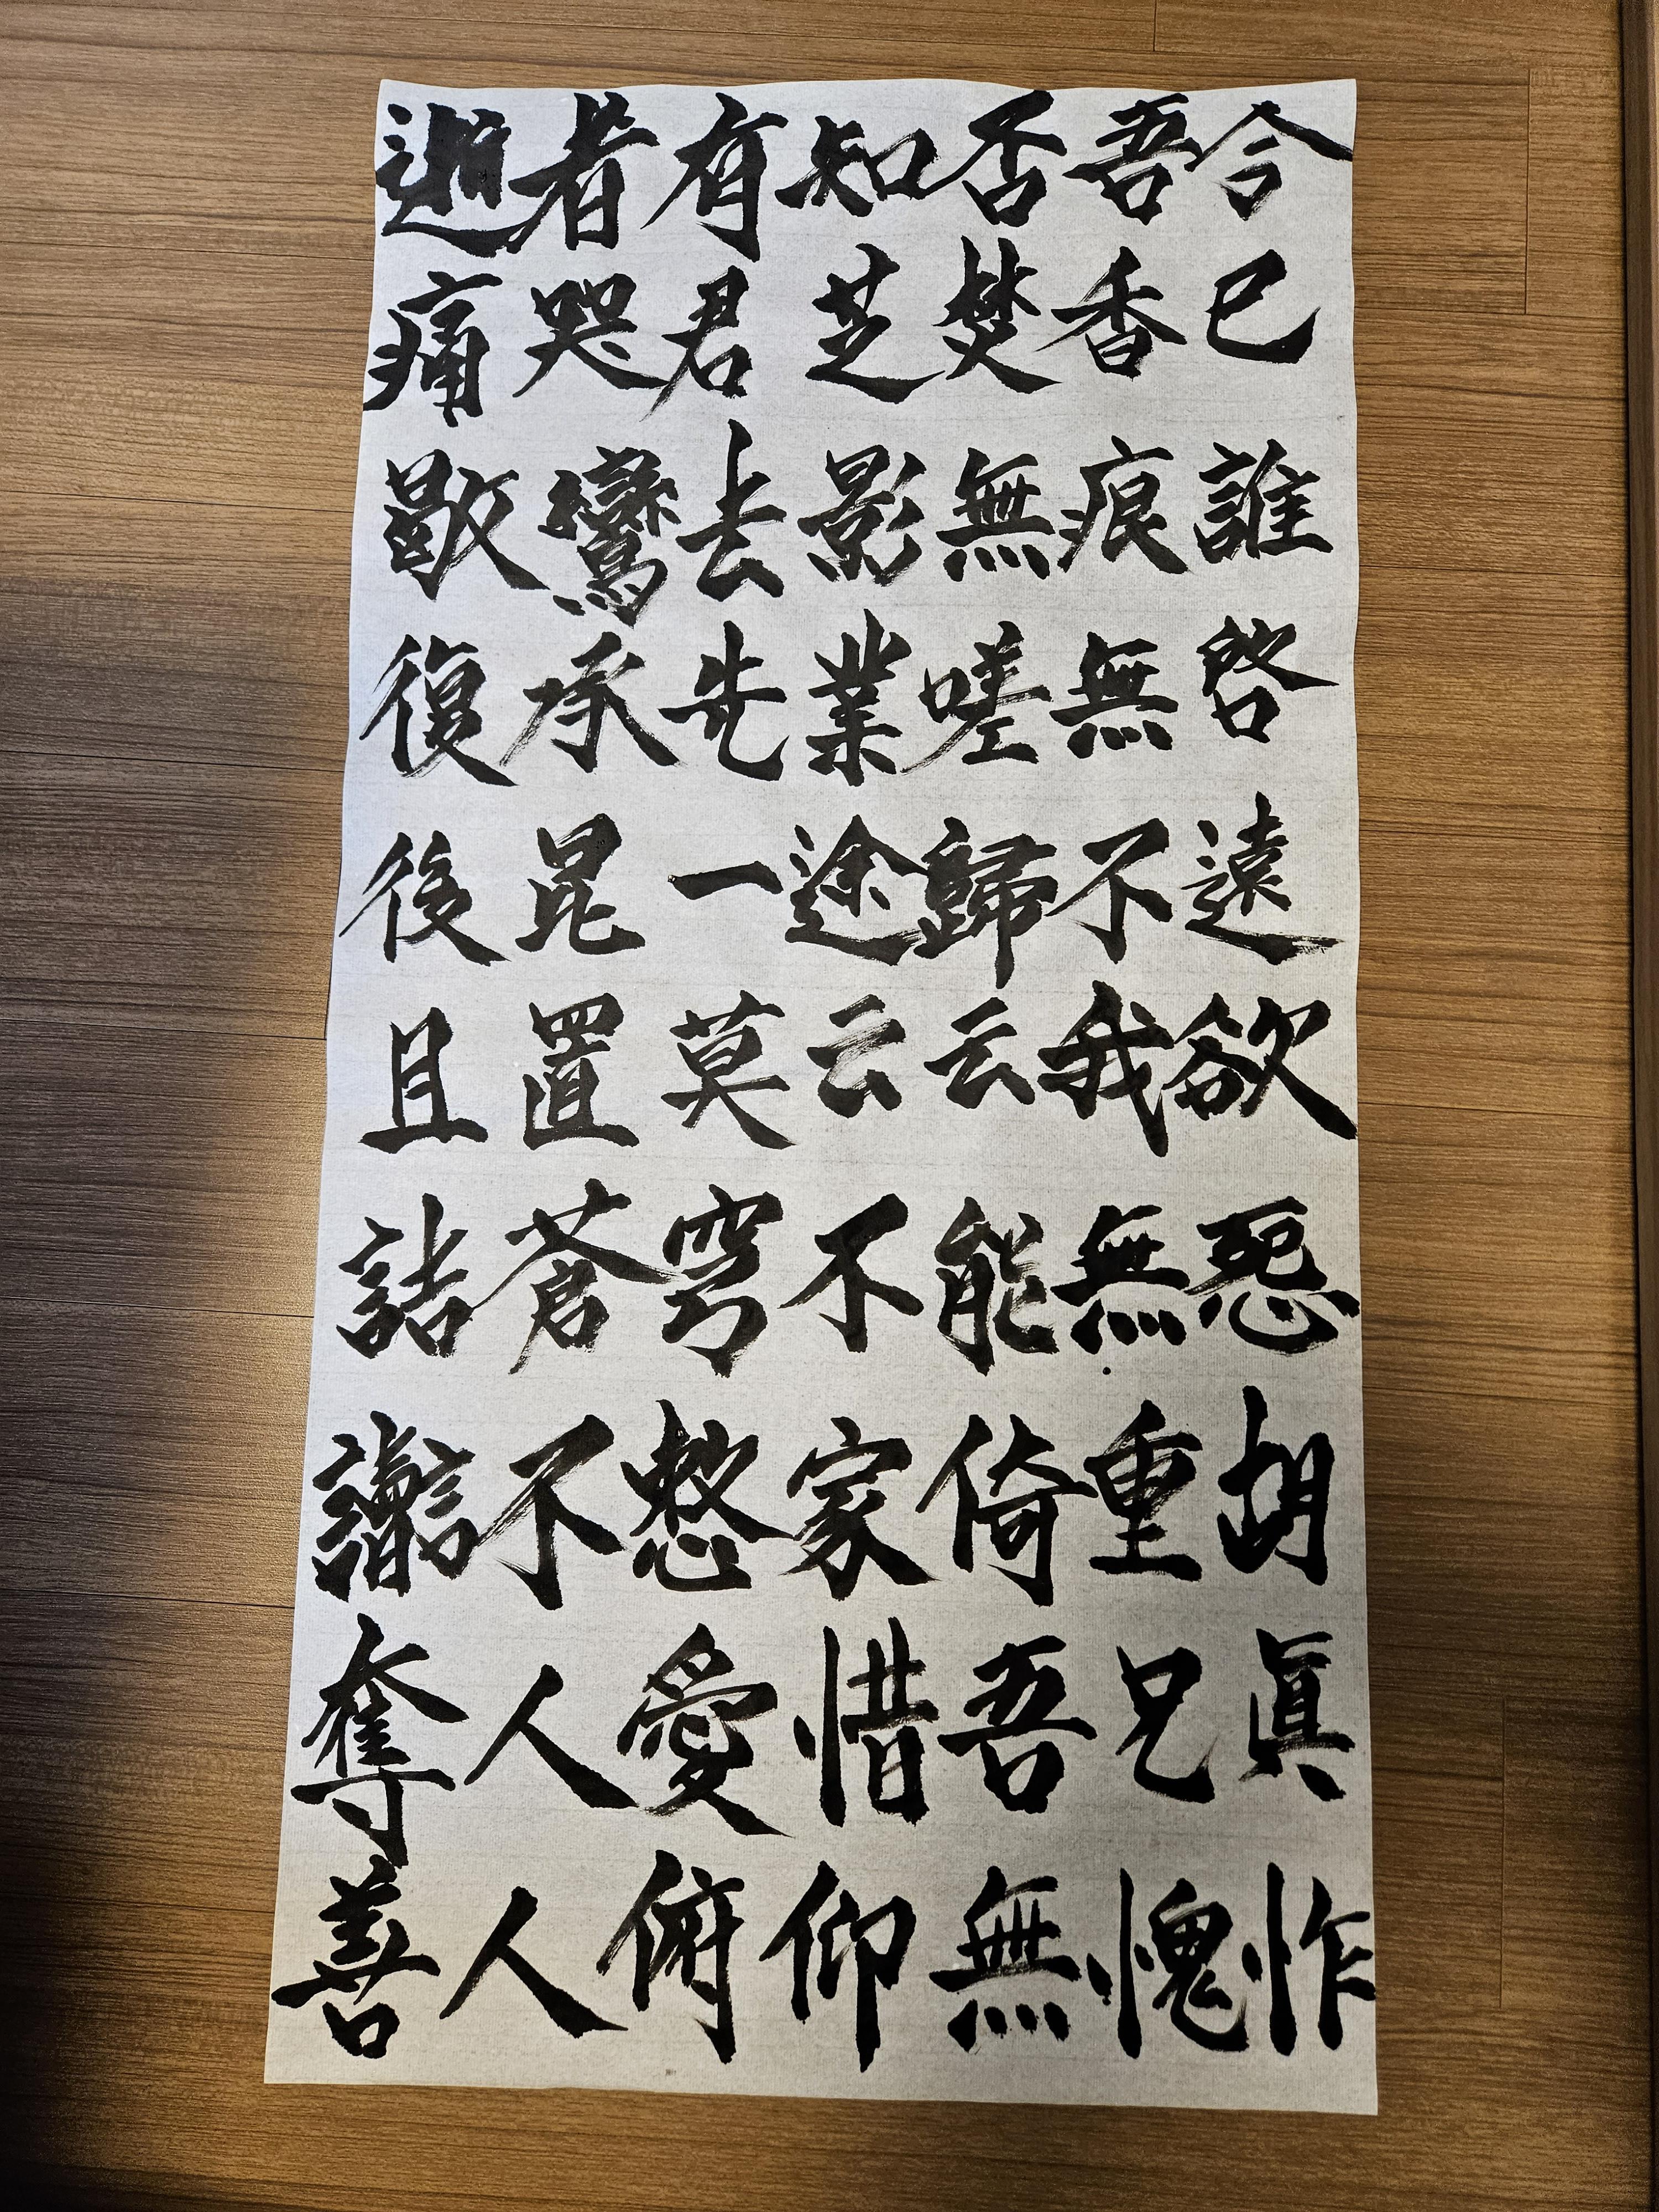 逝者有知否吾今
痛哭君芝焚香已
歇鸞去影無痕誰
復承先業嗟無啓
後昆一途歸不遠
且置莫云云我欲
詰蒼穹不能無怨
讟不憖家倚重胡
奪人愛惜吾兄眞
善人俯仰無愧怍